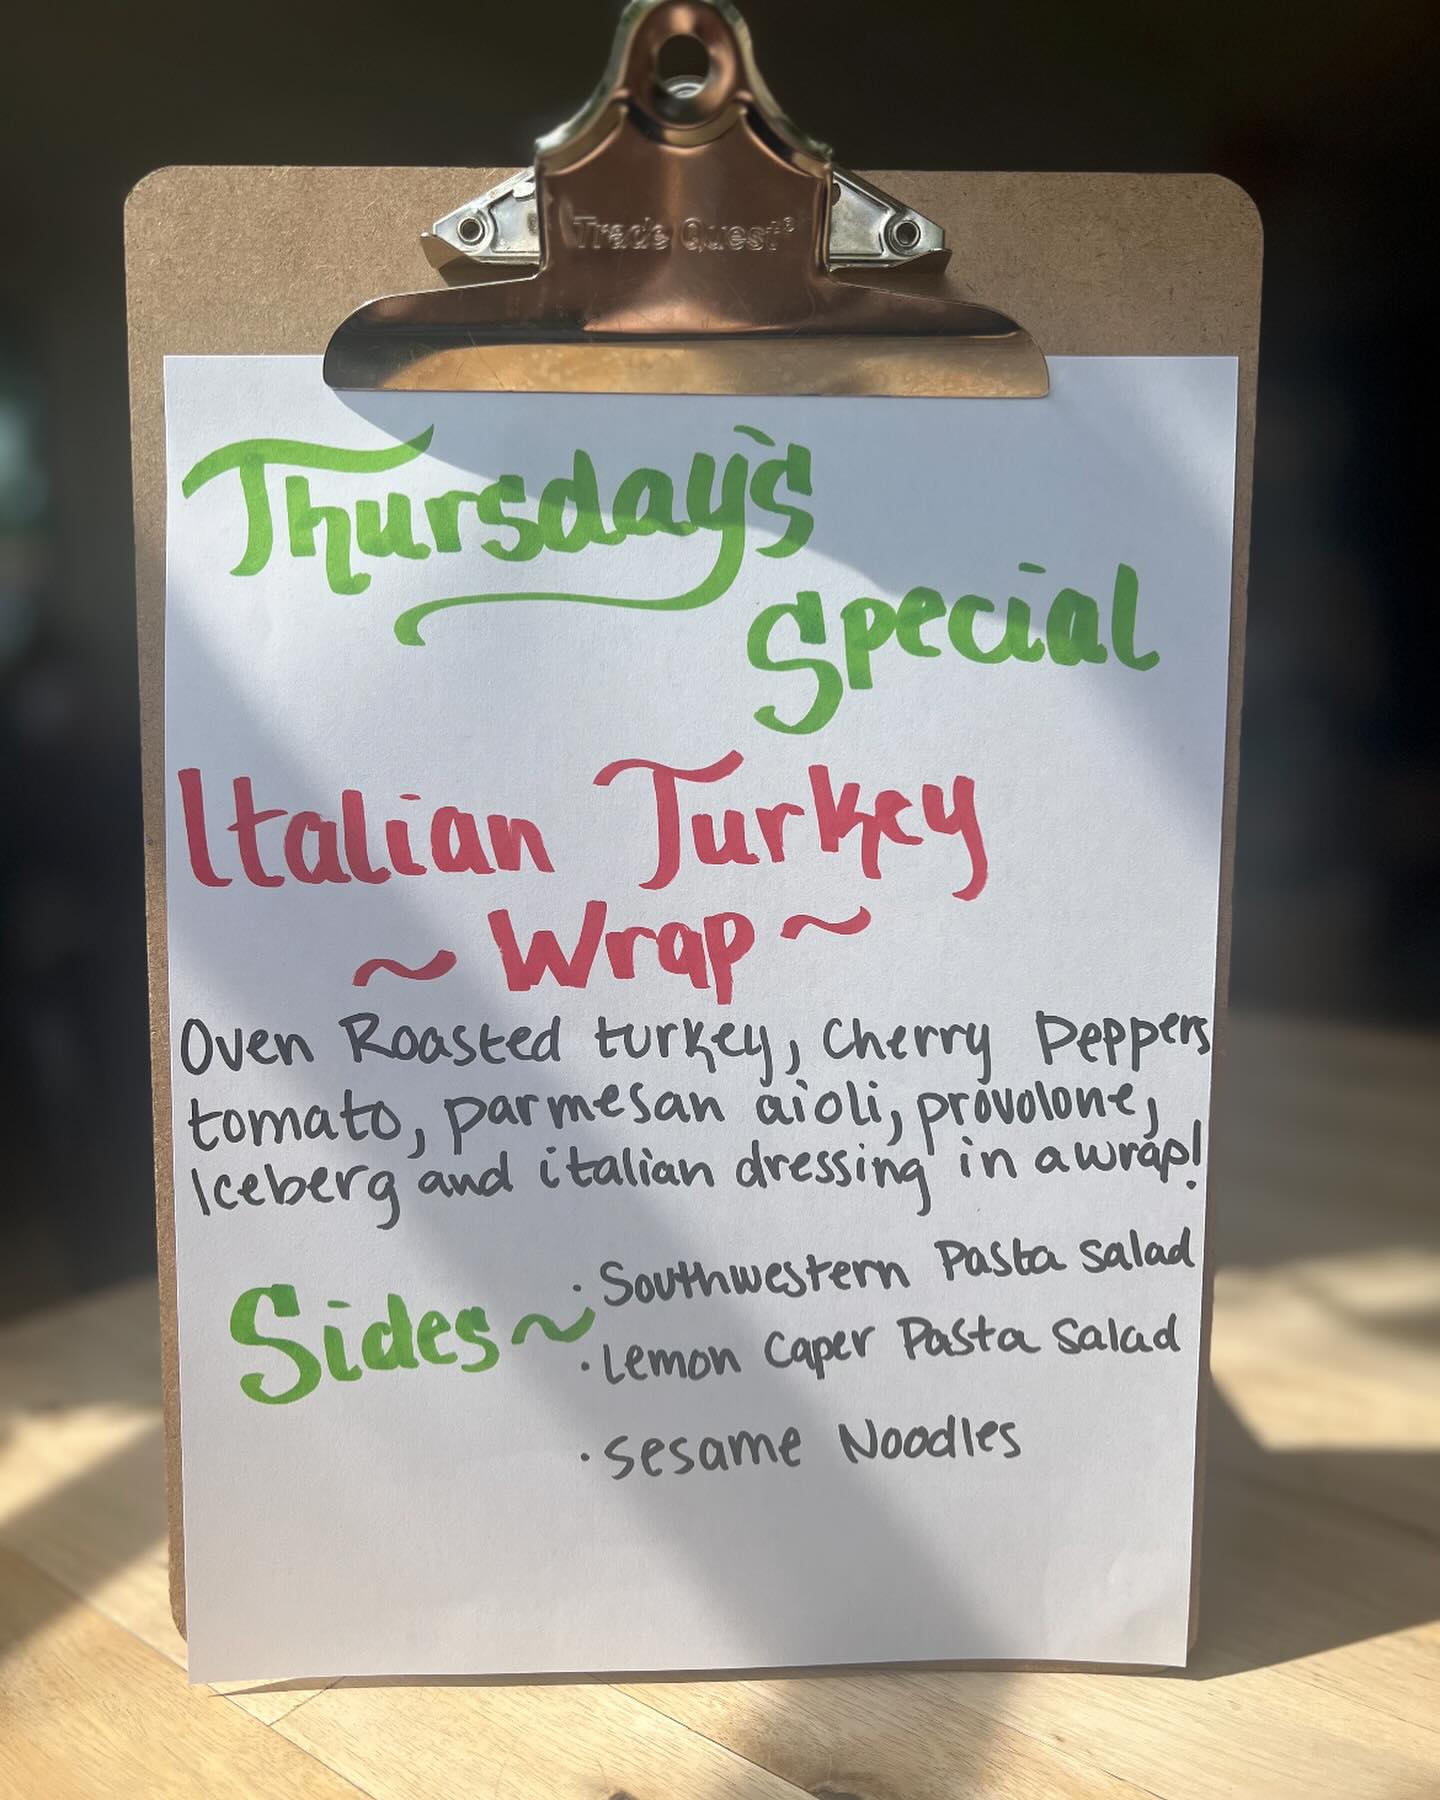 Trade Quest®
Thursday's
Special
Italian Turkey
~ Wrap ~
Oven Roasted turkey, Cherry Peppers
tomato, parmesan aioli, provolone,
Iceberg and italian dressing in a wrap!
Sides~
· Southwestern Pasta Salad
· Lemon Caper Pasta Salad
· Sesame Noodles